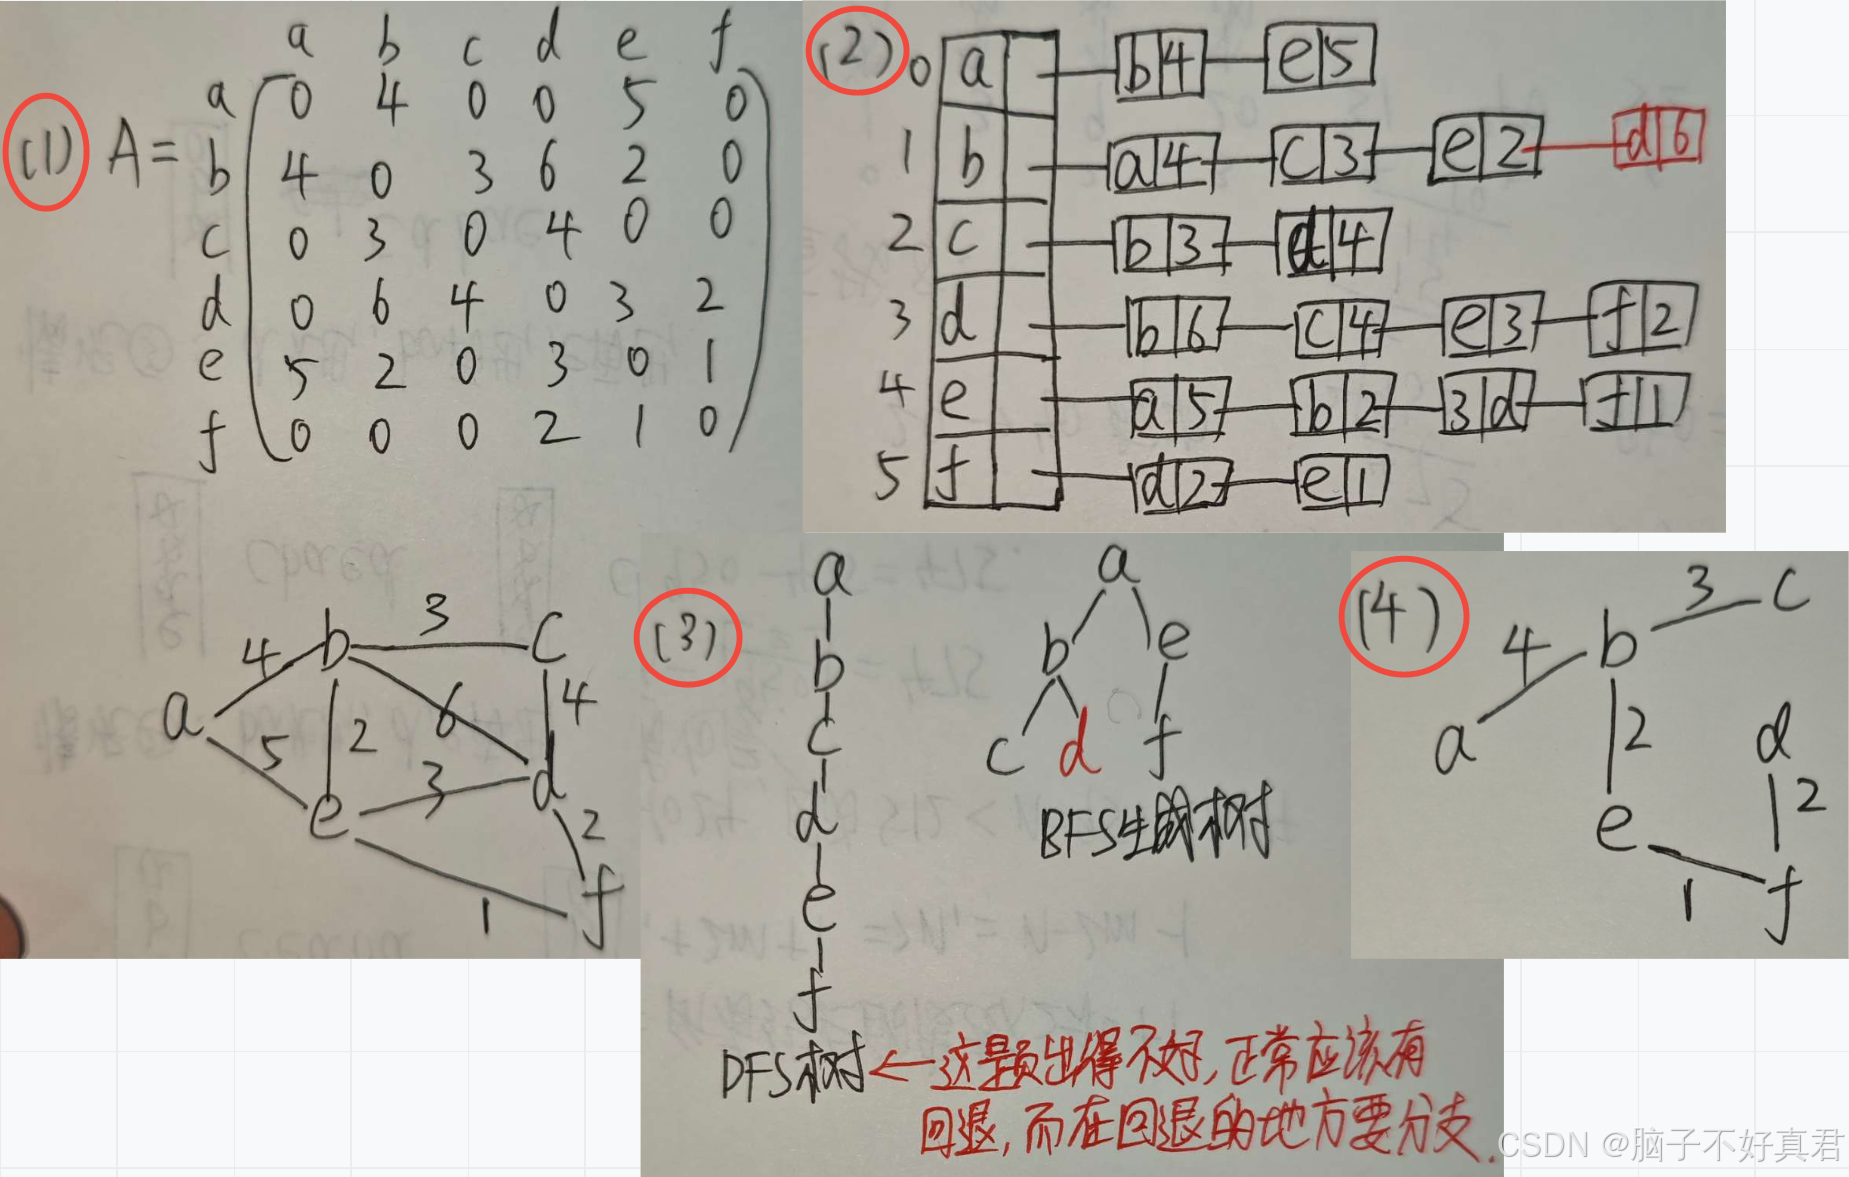 (1) A=
a b c d e f
a 0 4 0 0 5 0
b 4 0 3 6 2 0
c 0 3 0 4 0 0
d 0 6 4 0 3 2
e 5 2 0 3 0 1
f 0 0 0 2 1 0
a b c d e f
4 3 5 2 6 4 3 2 1
(2)
0 a b 4 e 5
1 b a 4 c 3 e 2 d 6
2 c b 3 d 4
3 d b 6 c 4 e 3 f 2
4 e a 5 b 2 3 d f 1
5 f d 2 e 1
(3)
a
b
c
d
e
f
DFS树
a
b e
c d f
BFS生成树
←这题出得不好,正常应该有
回退,而在回退的地方要分支.
(4)
3 c
4 b
a 2 d
e 2
1 f
CSDN @脑子不好真君